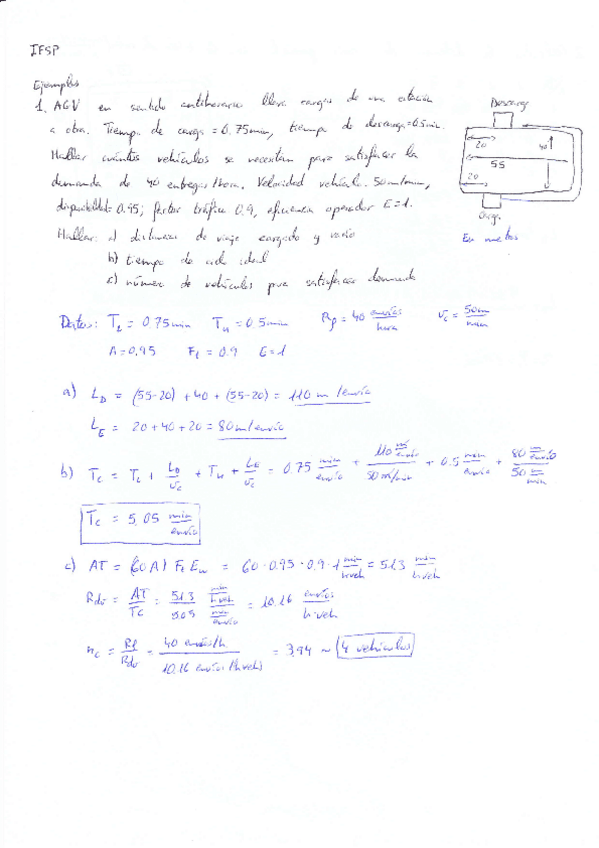 IFSP
Ejemplos
1. AGV en sentido antihorario lleva cargas de una estación
a otra. Tiempo de carga = 0.75min, tiempo de descarga=0.5min.
Hallar cuántos vehículos se necesitan para satisfacer la
demanda de 40 entregas/hora. Velocidad vehículo. 50m/min,
disponibilidad 0.95; factor tráfico 0.9, eficiencia operador E=1.
Hallar: a) distancias de viaje cargado y vacío
b) tiempo de ciclo ideal
c) número de vehículos para satisfacer demanda
Descarga
20
40
55
20
Carga
En metros
Datos: T_L = 0.75min T_u = 0.5min R_f = 40 envíos/hora v_c = 50m/min
A = 0.95 F_t = 0.9 E = 1
a) L_D = (55-20) + 40 + (55-20) = 110 m/envío
L_E = 20 + 40 + 20 = 80m/envío
b) T_c = T_L + L_D/v_c + T_u + L_E/v_c = 0.75 min/envío + 110 m/envío / 50 m/min + 0.5 min/envío + 80 m/envío / 50 m/min
T_c = 5,05 min/envío
c) AT = (60A) F_t E_w = 60·0.95·0.9·1 min/h·veh = 51.3 min/h·veh
R_dv = AT/TC = 51.3 min/h·veh / 5.05 min/envío = 10.16 envíos/h·veh
n_c = R_f/R_dv = 40 envíos/h / 10.16 envíos/(h·veh) = 3,94 ~ 4 vehículos